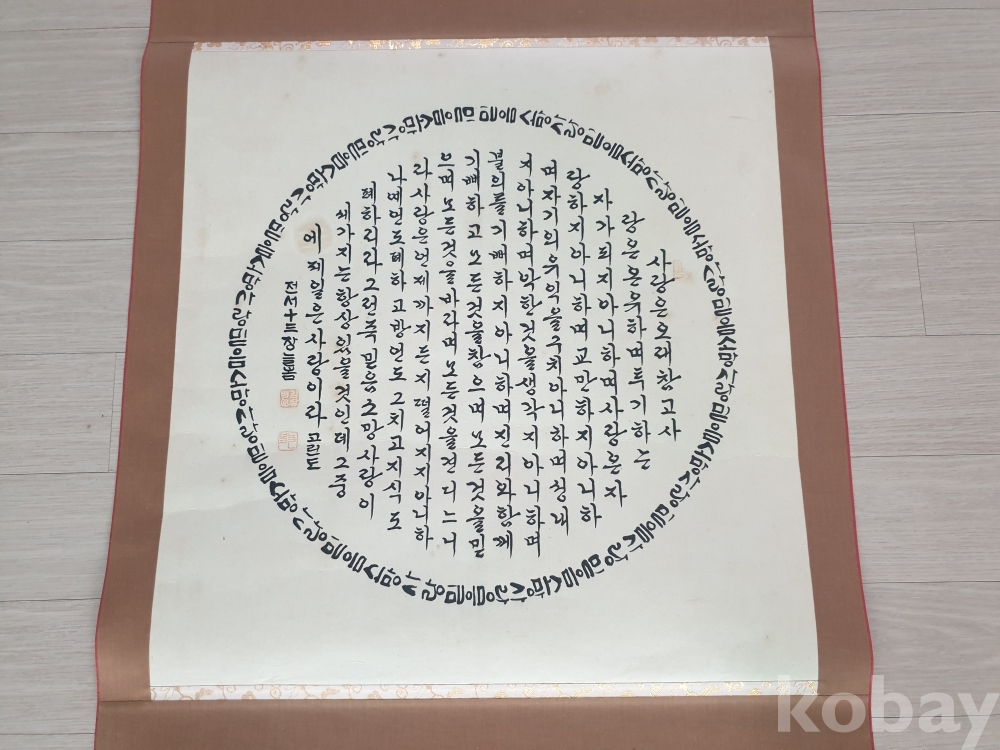 사랑은오래참고사
랑은온유하며투기하는
자가되지아니하며사랑은자
랑하지아니하며교만하지아니하
며자기의유익을구치아니하며성내
지아니하며악한것을생각지아니하며
불의를기뻐하지아니하며진리와함께
기뻐하고모든것을참으며모든것을믿
으며모든것을바라며모든것을견디느니
라사랑은언제까지든지떨어지지아니하
나예언도폐하고방언도그치고지식도
폐하리라그런즉믿음소망사랑이
세가지는항상있을것인데그중
에제일은사랑이라고린도
전서十三장늘봄
믿음소망사랑믿음소망사랑믿음소망사랑믿음소망사랑믿음소망사랑믿음소망사랑믿음소망사랑믿음소망사랑믿음소망사랑믿음소망사랑믿음소망사랑믿음소망사랑
kobay